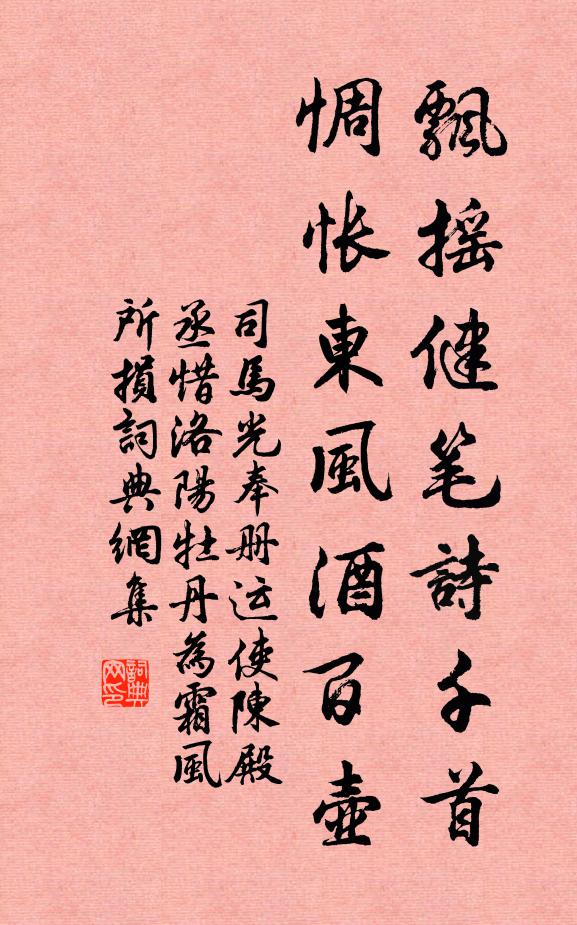 飄摇健笔詩千首
惆怅東風酒百壶
司馬光奉册运使陳殿
丞惜洛陽牡丹為霜風
所損詞典網集
詞典
网印